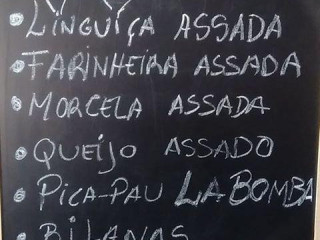 LINGUIÇA ASSADA
FARINHEIRA ASSADA
MORCELA ASSADA
QUEIJO ASSADO
PICA-PAU LA BOMBA